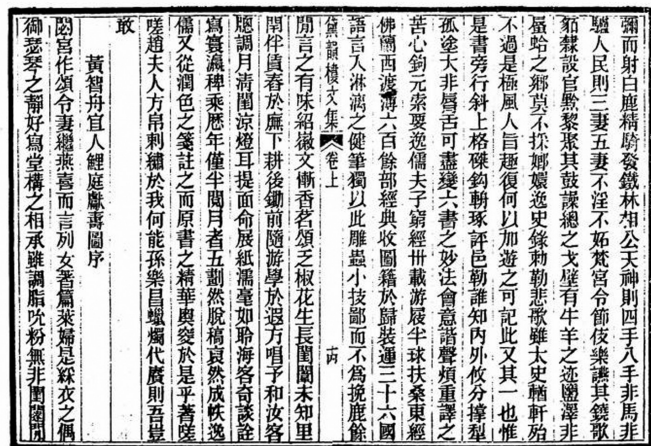 彌而射白鹿精騎發鐵林相公天神則四手八手非馬非
驢人民則三妻五妻不淫不妬梵宮令節伎樂讌其鐃歌
貊隸設官黔黎聚其鼓譟總之戈壁有牛羊之迹鹽澤非
蜃蛤之鄉莫不採嫏嬛逸史錄勅勒悲歌雖太史輶軒殆
不過是極風人旨趣復何以加遊之可記此又其一也惟
是書旁行斜上格磔鉤輈琢評邑勒誰知內外攸分撐犁
孤塗大非脣舌可盡變六書之妙法會意諧聲煩重譯之
苦心鉤元索要逸儒夫子窮經卅載游履半球扶桑東經
佛蘭西渡溥六百餘部經典收圖籍於歸裝運三十六國
語言入淋漓之健筆獨以此雕蟲小技鄙而不為挽鹿餘
黛韻樓文集 卷上
閒言之有味紹徽文慚香茗頌乏椒花生長閨闥未知里
閈伴賃舂於廡下耕後鋤前隨游學於遐方唱予和汝客
牕調月清閨涼燈耳提面命展紙濡毫如聆海客奇談詮
寫寰瀛稗乘歷年僅半閱月者五劃然脫稿裒然成帙逸
儒又從潤色之箋註之而原書之精華奧窔於是乎著嗟
嗟趙夫人方帛刺繡於我何能孫樂昌蠟燭代賡則吾豈
敢
黃智舟宜人鯉庭獻壽圖序
閟宮作頌令妻繼燕喜而言列女著篇萊婦是綵衣之偶
御瑟琴之靜好寫堂構之相承雖調脂吮粉無非閨閣閒